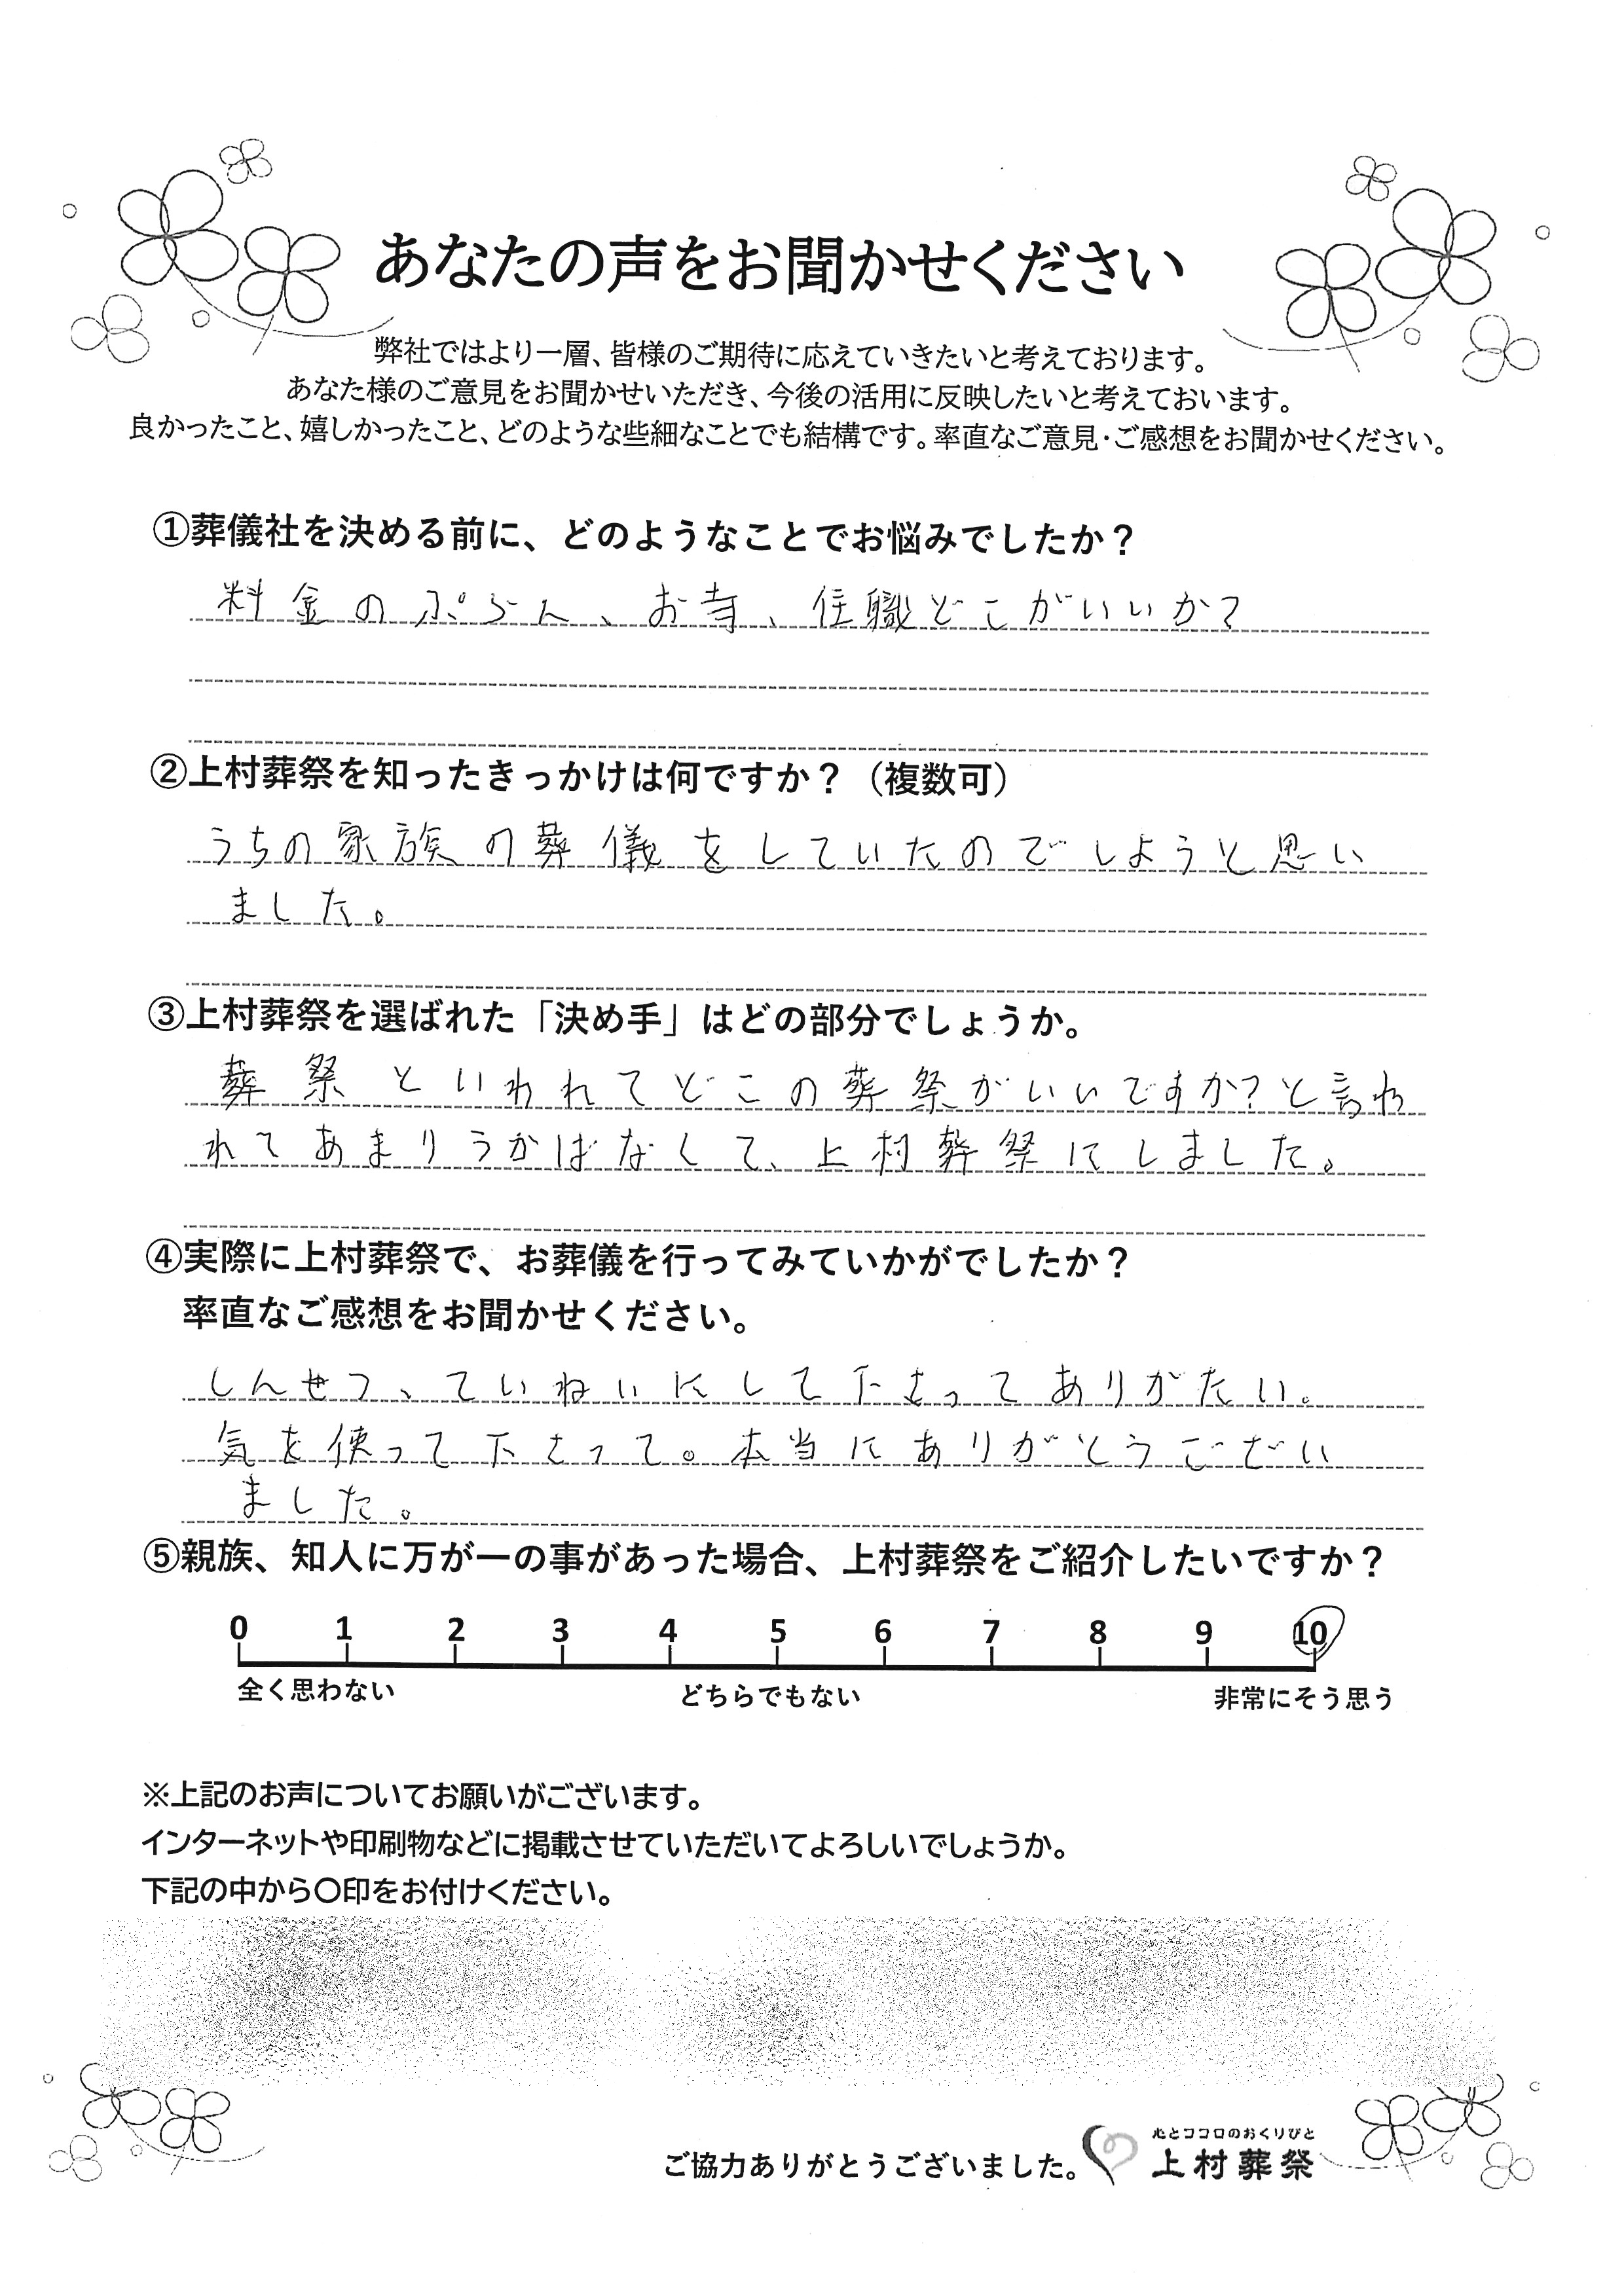 あなたの声をお聞かせください
弊社ではより一層、皆様のご期待に応えていきたいと考えております。
あなた様のご意見をお聞かせいただき、今後の活用に反映したいと考えておいます。
良かったこと、嬉しかったこと、どのような些細なことでも結構です。率直なご意見・ご感想をお聞かせください。
①葬儀社を決める前に、どのようなことでお悩みでしたか？
料金のぷらん、お寺、住職どこがいいか?
②上村葬祭を知ったきっかけは何ですか？（複数可）
うちの家族の葬儀をしていたのでしようと思い
ました。
③上村葬祭を選ばれた「決め手」はどの部分でしょうか。
葬祭といわれてどこの葬祭がいいですか?と言われ
れてあまりうかばなくて、上村葬祭にしました。
④実際に上村葬祭で、お葬儀を行ってみていかがでしたか？
率直なご感想をお聞かせください。
しんせつ、ていねいにして下さってありがたい。
気を使って下さって。本当にありがとうございい
ました。
⑤親族、知人に万が一の事があった場合、上村葬祭をご紹介したいですか？
0 1 2 3 4 5 6 7 8 9 10
全く思わない どちらでもない 非常にそう思う
※上記のお声についてお願いがございます。
インターネットや印刷物などに掲載させていただいてよろしいでしょうか。
下記の中から〇印をお付けください。
心とココロのおくりびと
ご協力ありがとうございました。 上村葬祭